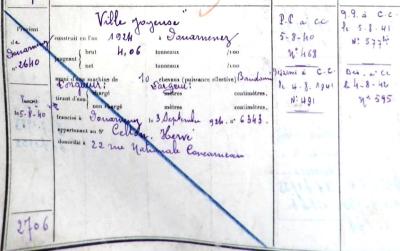 "Ville Joyeuse"
Provient
de Douarnenez
n° 2640
construit en l'an 1924 à Douarnenez
jaugeant
brut 4,06 tonneaux /100
net tonneaux /100
muni d'une machine de 10 chevaux (puissance effective) Baudouin
Longueur: Largeur:
chargé mètres centimètres,
tirant d'eau
non chargé mètres centimètres,
francisé à Douarnenez le 3 Septembre 924 n° 6343.
appartenant au Sr Hervé
domicilié à 22 rue Nationale Concarneau
Francisé
5-8-40
2706
P.C. à CC
5-8-40
N° 468
à C.C.
le 4.8.1941
N° 491
à C.C.
le 5.8.41
N° 577
à CC
le 4-8-42
N° 595